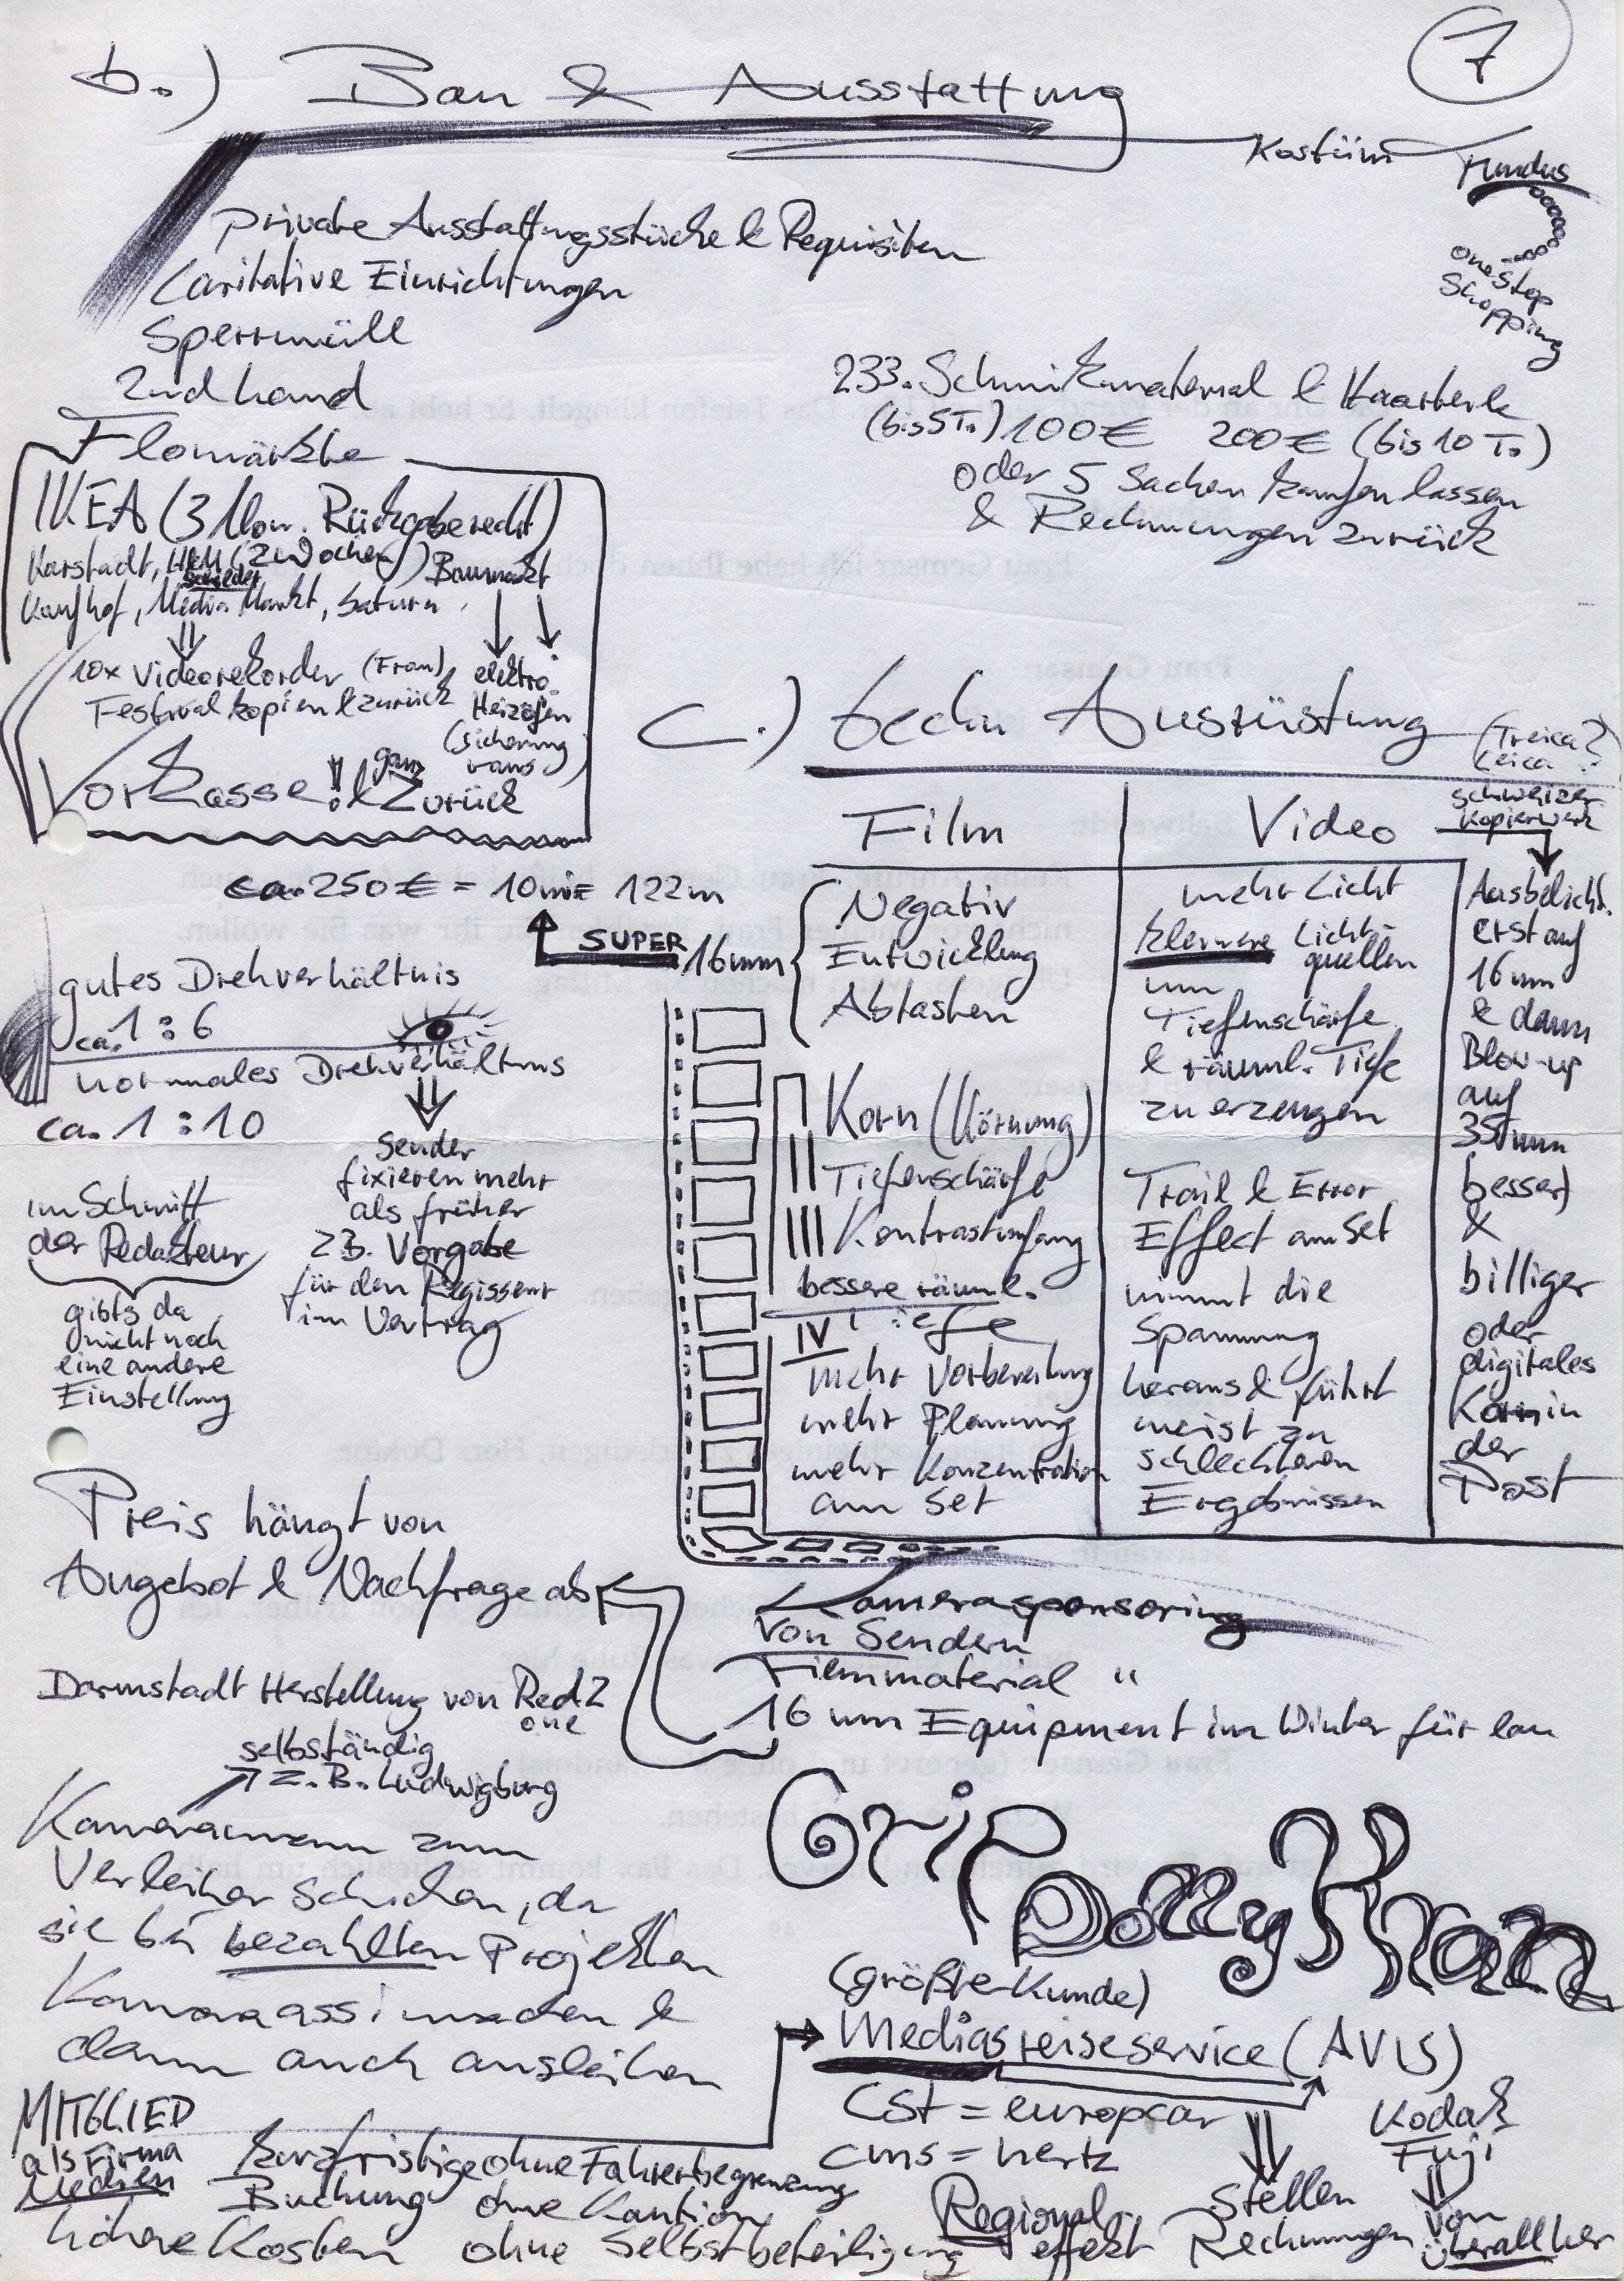 7
b.) Bau & Ausstattung
Kostüm
Fundus
one stop
shopping
private Ausstattungsstücke & Requisiten
Caritative Einrichtungen
Sperrmüll
2nd hand
Flomärkte
IKEA (3 Mon. Rückgaberecht)
Karstadt, H&M (2 Wochen) Baumarkt
Kaufhof, Media Markt, Saturn
10x Videorekorder (Frau)
Festivalkopien & zurück
elektro.
Heizöfen
(sicherung
raus)
Vorkasse!! & ganz zurück
233. Schminkmaterial & Haarteile
(bis 5 T.) 100€ 200€ (bis 10 T.)
oder 5 Sachen kaufen lassen
& Rechnungen zurück
c.) techn Ausrüstung
(Treica?
Leica
schweizer
Kopierwerk
Film
Video
ca. 250€ = 10min = 122m
SUPER 16mm
Negativ
Entwicklung
Abtasten
I Korn (Körnung)
II Tiefenschärfe
III Kontrastumfang
bessere räuml.
IV Tiefe
mehr Vorbereitung
mehr Planung
mehr Konzentration
am Set
mehr Licht
kleinere Licht-
quellen
um
Tiefenschärfe
& räuml. Tiefe
zu erzeugen
Trail & Error
Effect am Set
nimmt die
Spannung
heraus & führt
meist zu
schlechteren
Ergebnissen
Ausbelicht.
erst auf
16mm
& dann
Blow-up
auf
35mm
besser)
&
billiger
oder
digitales
Korn in
der
Post
gutes Drehverhältnis
ca. 1:6
normales Drehverhältnis
ca. 1:10
Sender
fixieren mehr
als früher
z.B. Vorgabe
für den Regisseur
im Vertrag
im Schnitt
der Redakteur
gibts da
nicht noch
eine andere
Einstellung
Preis hängt von
Angebot & Nachfrage ab
Kamerasponsoring
von Sendern
Filmmaterial "
16 mm Equipment im Winter für lau
Darmstadt Herstellung von Red 2
one
selbständig
z.B. Ludwigburg
Kameramann zum
Verleiher schicken, da
sie bei bezahlten Projekten
Kameraassi machen &
dann auch ausleihen
Grip Dolly Kran
(größte Kunde)
Mediasreiseservice (AVIS)
CSt = europcar
cms = hertz
Kodak
Fuji
von
überall her
stellen
Rechnungen
Regional-
effekt
MITGLIED
als Firma
Medien
kurzfristige ohne Fahrerbegrenzung
Buchung ohne Kaution
höhere Kosten ohne Selbstbeteiligung